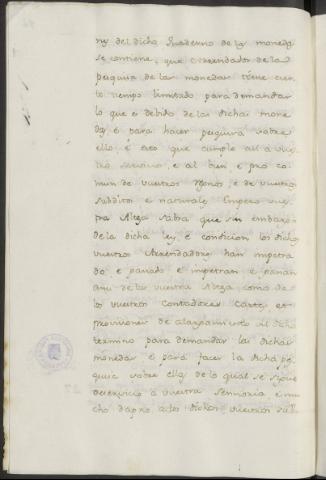 nes del dicho Quaderno de las monedas
se contiene, que el arrendador de la
pesquisa de las monedas tiene cier
to tiempo limitado para demandar
lo que es debido de las dichas mone
das, e para hacer pesquisa sobre
ello, e esto que cumple asi a vues
tro servicio, e al bien, e pro co
mun de vuestros Reynos, e de vuestros
subditos e naturales Empero vues
tra Alteza sabra que sin embargo
de la dicha ley, e condicion los dichos
vuestros Arrendadores han impetra
do e ganado e impetran e ganan
ansi de la vuestra Alteza como de
los vuestros Contadores Cartas e
provisiones de alargamiento del dicho
termino para demandar las dichas
monedas, e para facer la dicha pes
quisa sobre ellas de lo qual se sigue
deservicio a vuestra Señoria, e mu
cho daño a los dichos vuestros sub